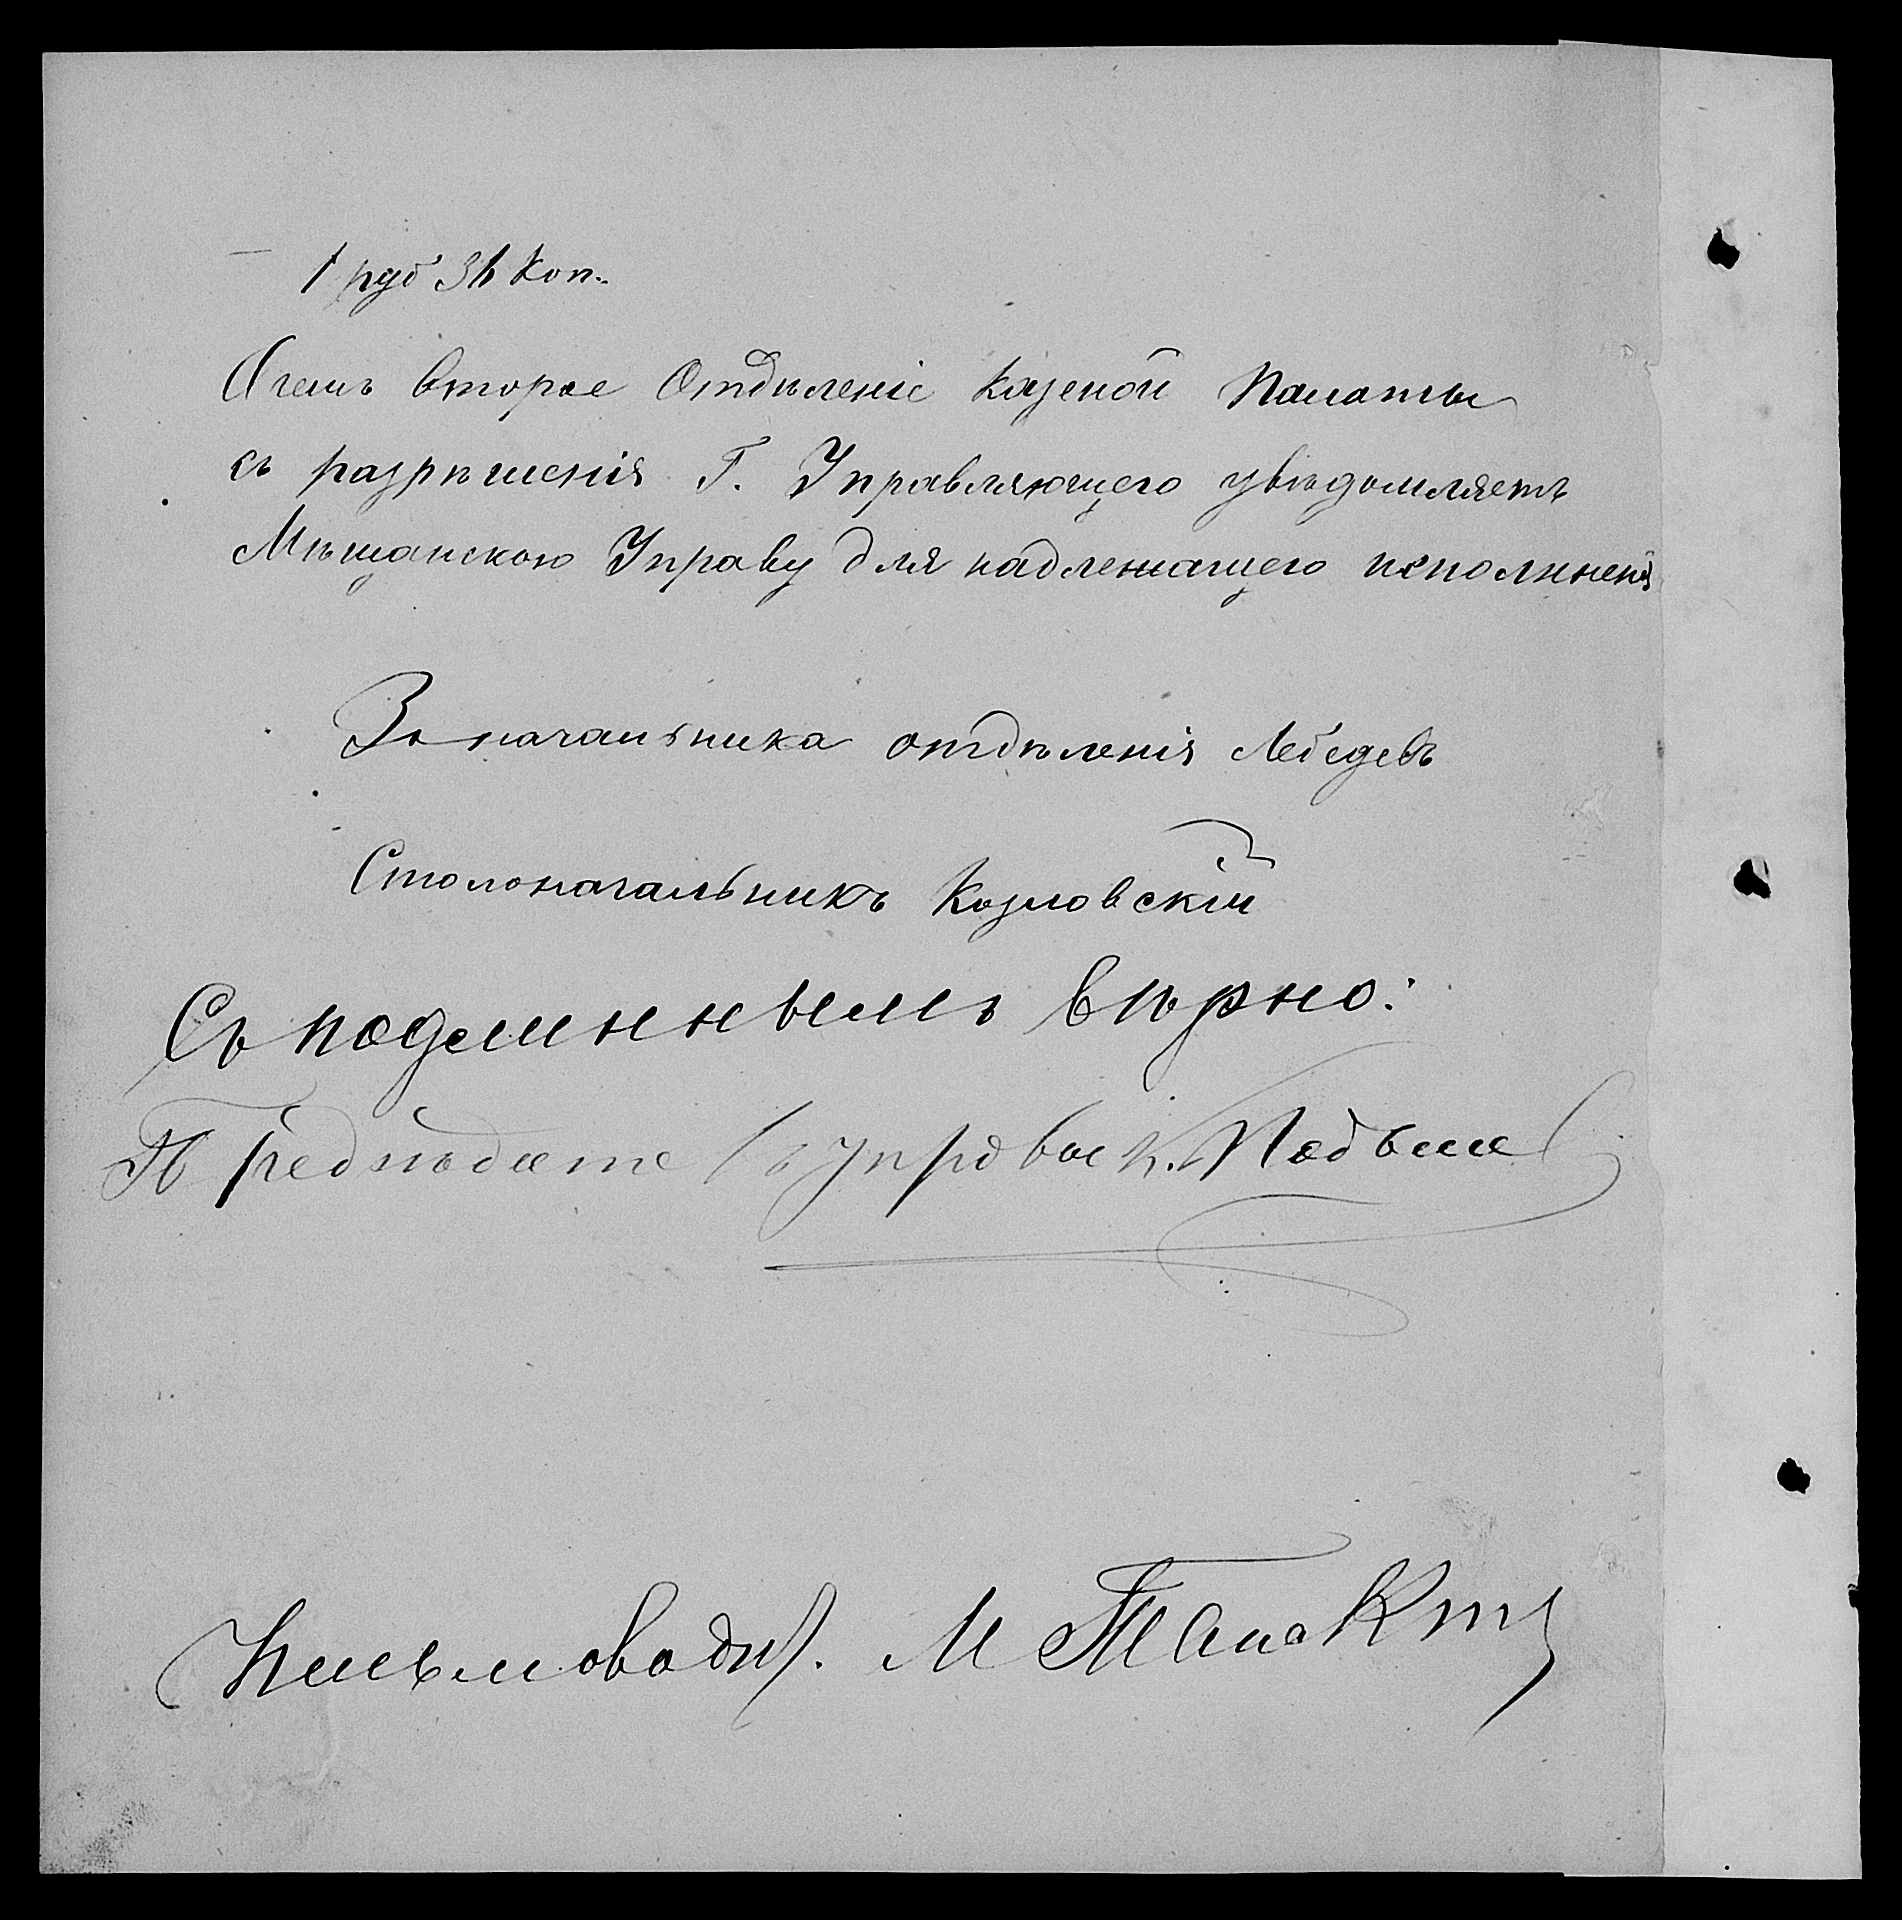 1 руб 31 коп.
О чемъ второе Отдѣленіе казеной Палаты
съ разрѣшенія Г. Управляющего увѣдомляетъ
Мѣщанскою Управу для надлежащего исполнения
За начальника отдѣленія Лебедевъ
Столоначальникъ Козловскій
Съ подлиннымъ вѣрно:
Предсѣдате управы
Письмовод. М